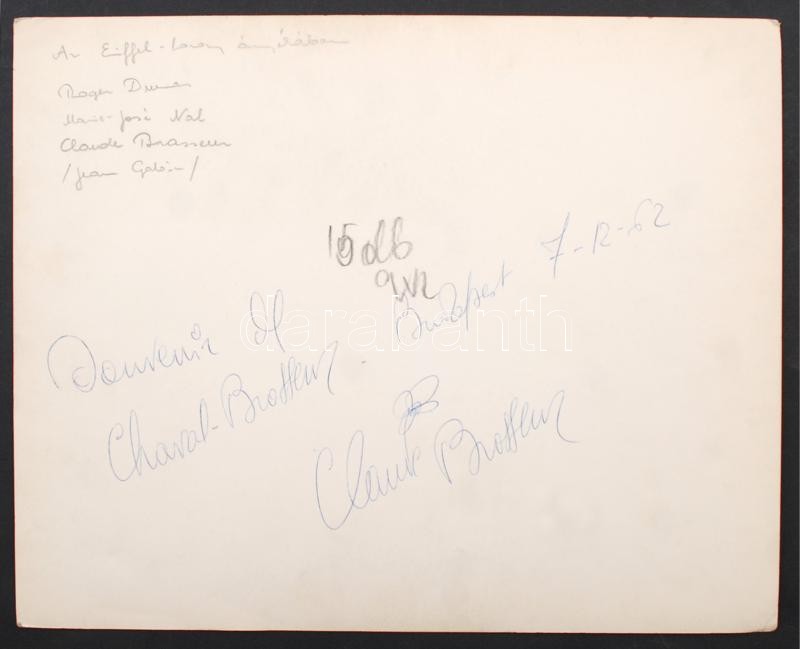 Az Eiffel-torony árnyékában
Roger Dumas
Marie-José Nat
Claude Brasseur
/Jean Gabin/
15 db
Souvenir
Budapest 7-12-62
Chaval-Brasseur -
Claude Brasseur
darabanth